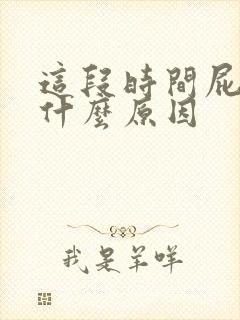 這段時間屁
什麼原因
我是羊咩